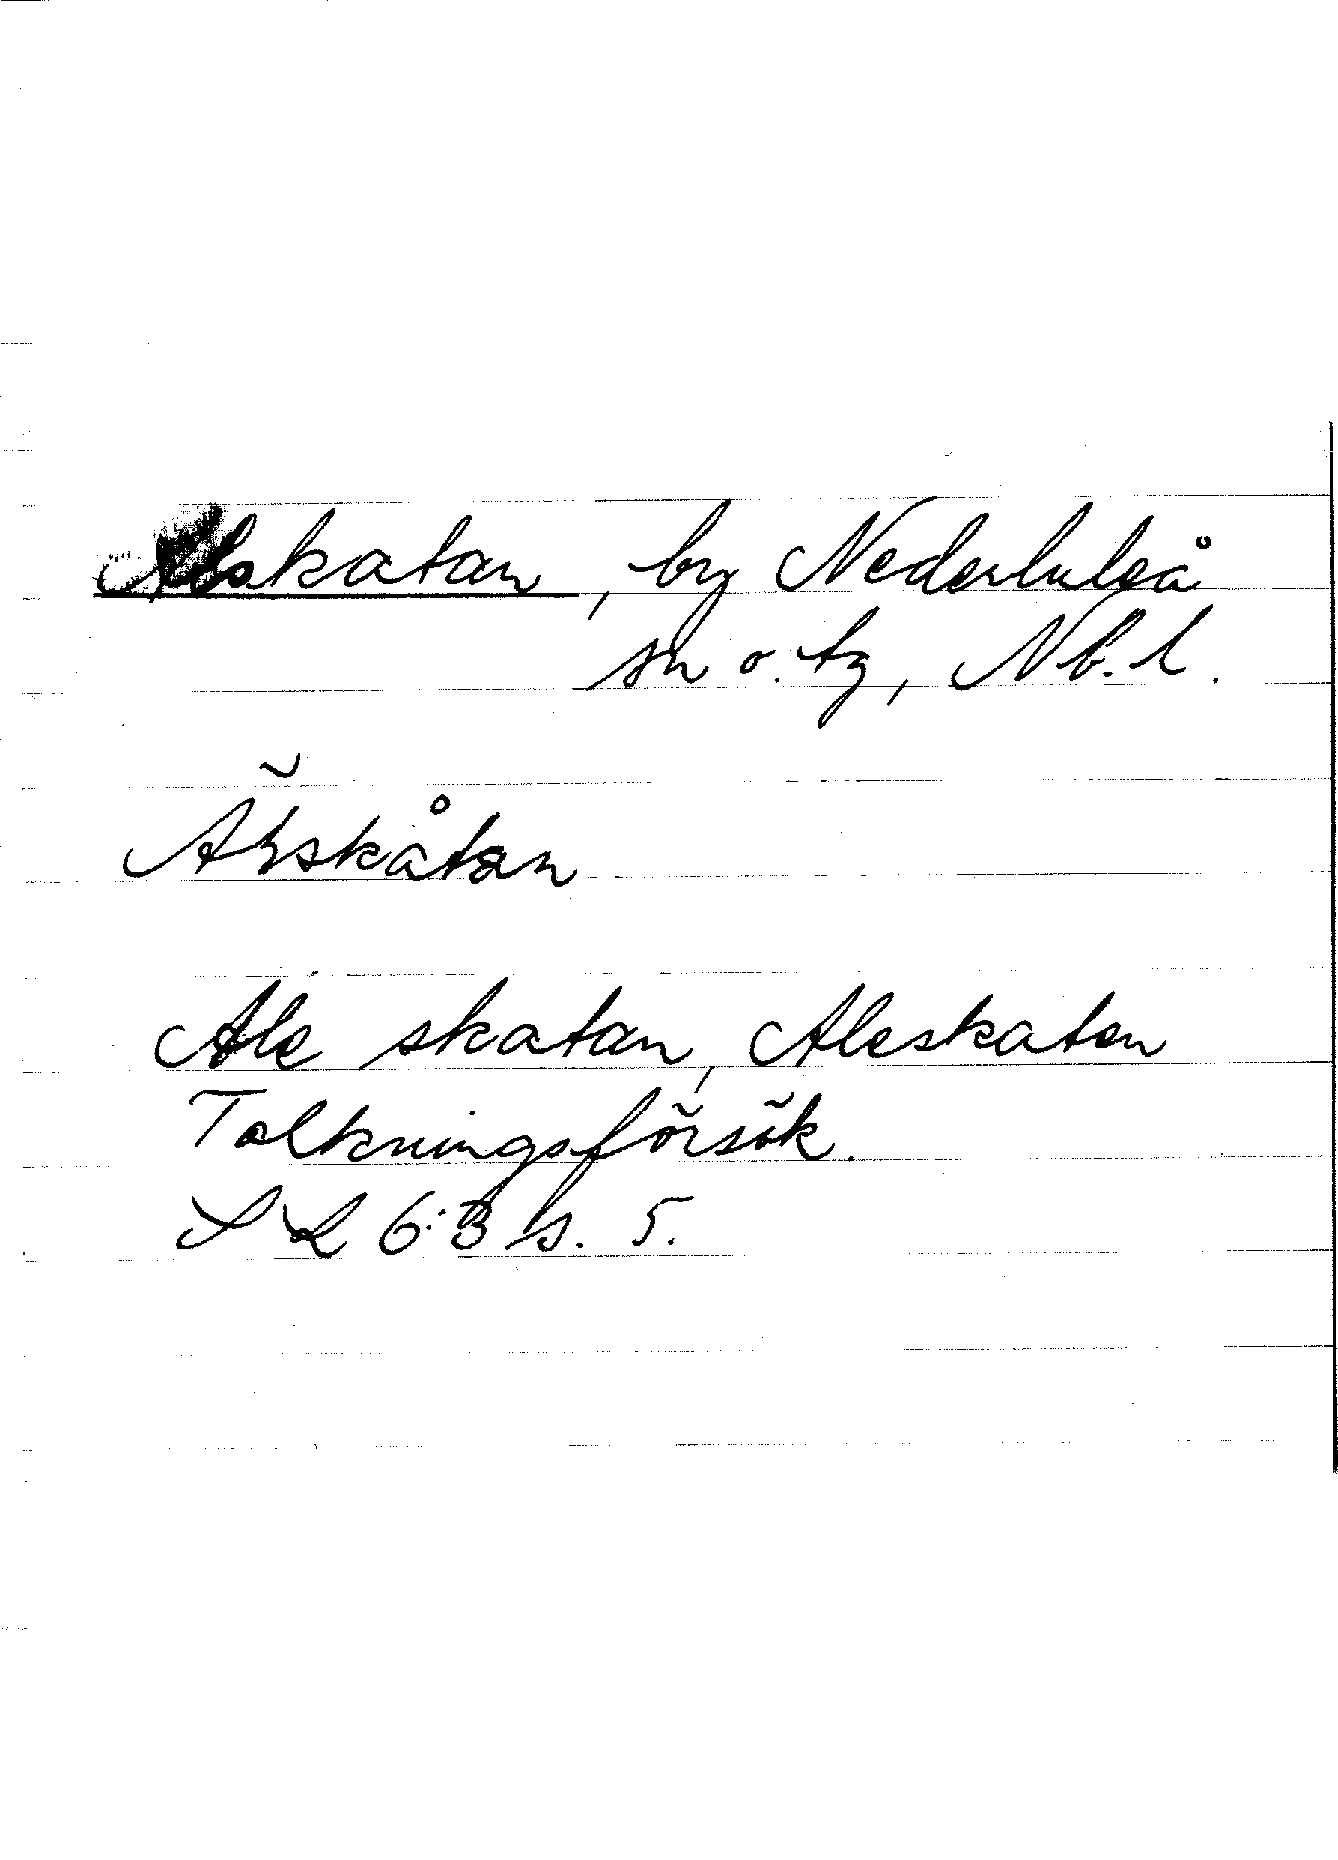 Alskatan, by Nederluleå
sn o. tg, Nb. l.
Ale skatan, Aleskaten
Tolkningsförsök.
SL 6:3 s. 5.